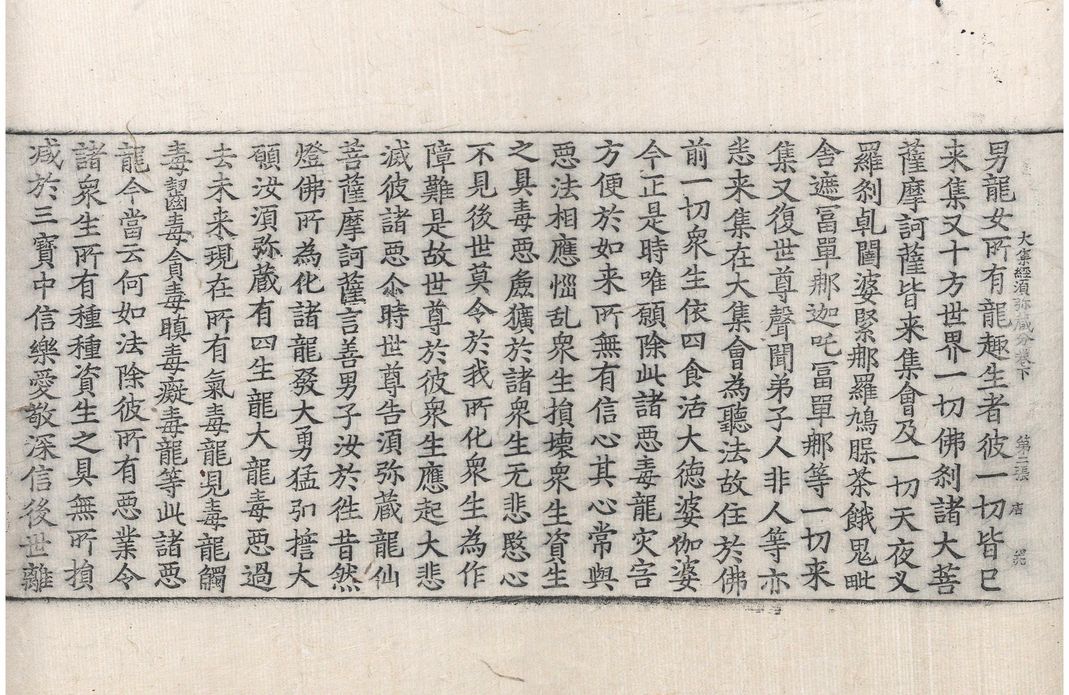 大集經須弥藏分卷下　第二張
男龍女所有龍趣生者彼一切皆已
来集又十方世界一切佛刹諸大菩
薩摩訶薩皆来集會及一切天夜叉
羅刹乹闥婆緊那羅鳩脲茶餓鬼毗
舍遮冨單那迦吒冨單那等一切来
集又復世尊聲聞弟子人非人等亦
悉来集在大集會為聽法故住於佛
前一切衆生依四食活大徳婆伽婆
今正是時唯願除此諸惡毒龍灾害
方便於如来所無有信心其心常與
惡法相應惱乱衆生損壊衆生資生
之具毒惡麁獷於諸衆生无悲愍心
不見後世莫令於我所化衆生為作
障難是故世尊於彼衆生應起大悲
滅彼諸惡尒時世尊告須弥藏龍仙
菩薩摩訶薩言善男子汝於徃昔然
燈佛所為化諸龍發大勇猛弘擔大
願汝須弥藏有四生龍大龍毒惡過
去未来現在所有氣毒龍見毒龍觸
毒齧毒貪毒瞋毒癡毒龍等此諸惡
龍今當云何如法除彼所有惡業令
諸衆生所有種種資生之具無所損
減於三寶中信樂愛敬深信後世離